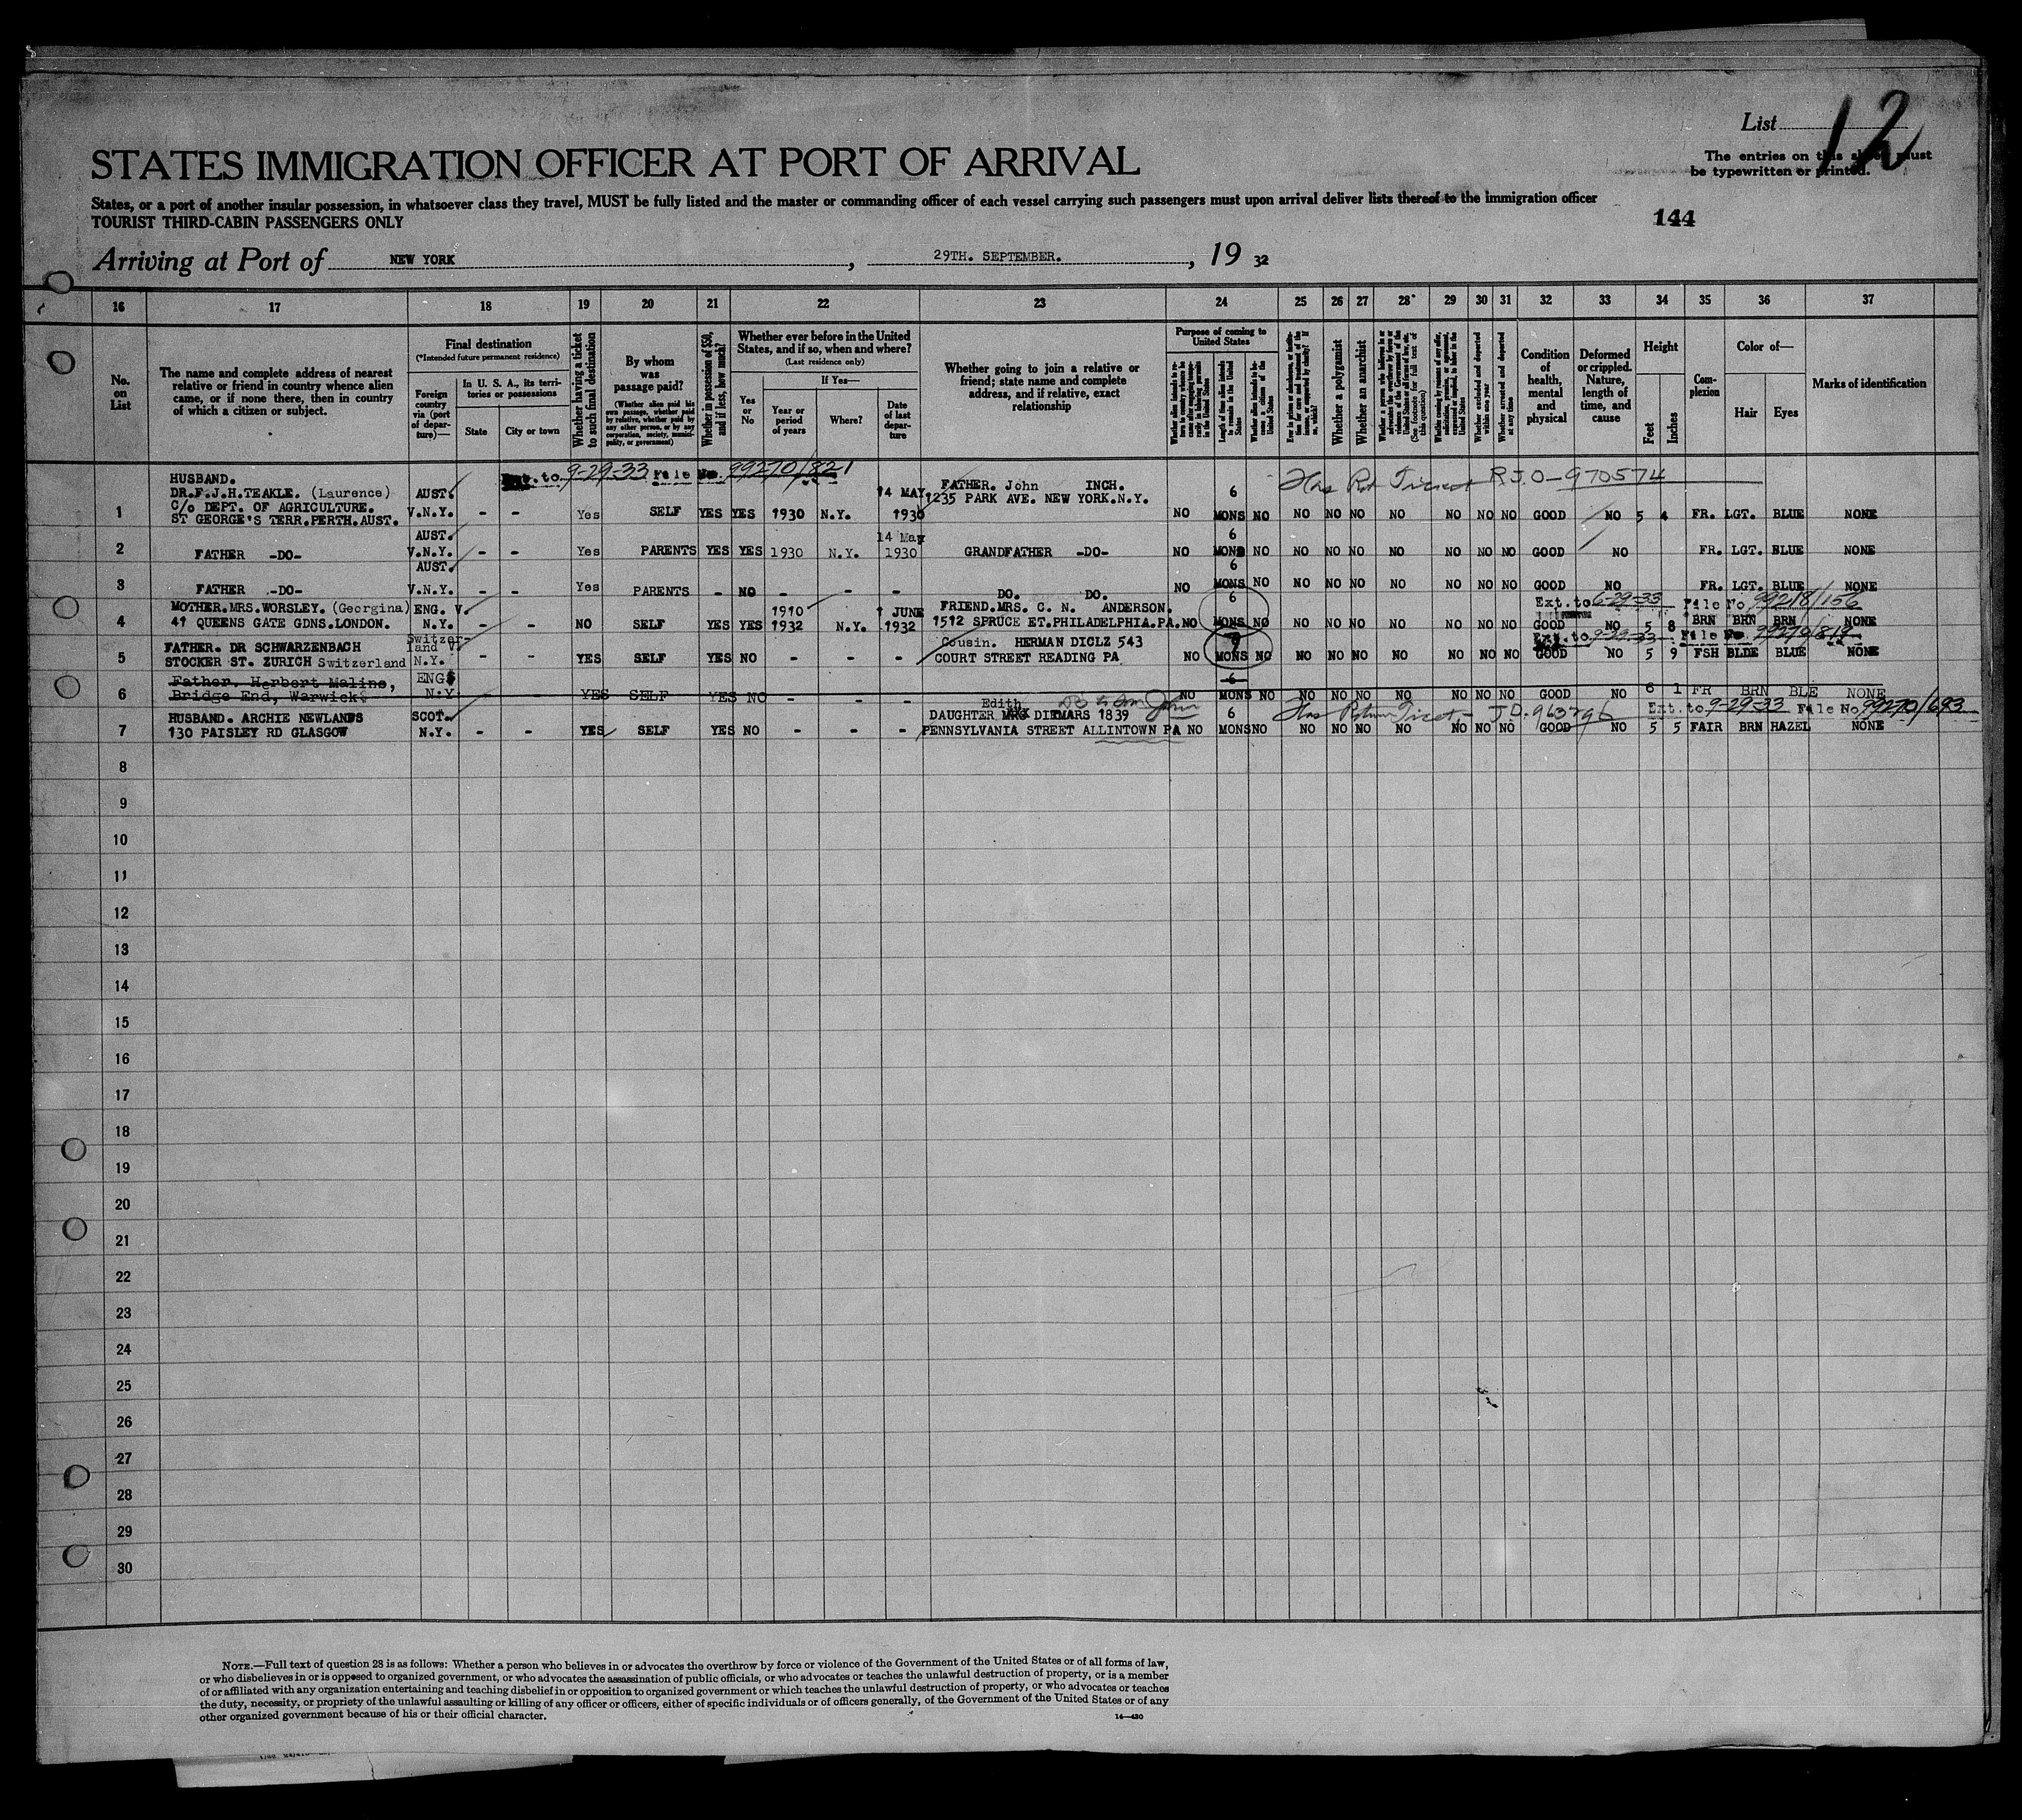 List 12
STATES IMMIGRATION OFFICER AT PORT OF ARRIVAL
The entries on this sheet must
be typewritten or printed.
States, or a port of another insular possession, in whatsoever class they travel, MUST be fully listed and the master or commanding officer of each vessel carrying such passengers must upon arrival deliver lists thereof to the immigration officer
TOURIST THIRD-CABIN PASSENGERS ONLY
144
Arriving at Port of NEW YORK, 29TH. SEPTEMBER., 19 32
16 17 18 19 20 21 22 23 24 25 26 27 28* 29 30 31 32 33 34 35 36 37
No. on List
The name and complete address of nearest relative or friend in country whence alien came, or if none there, then in country of which a citizen or subject.
Final destination
(*Intended future permanent residence)
Foreign country via (port of departure)—
In U. S. A., its territories or possessions
State
City or town
Whether having a ticket to such final destination
By whom was passage paid?
(Whether alien paid his own passage, whether paid by relative, whether paid by any other person, or by any corporation, society, municipality, or government)
Whether in possession of $50, and if less, how much?
Whether ever before in the United States, and if so, when and where?
(Last residence only)
Yes or No
If Yes—
Year or period of years
Where?
Date of last departure
Whether going to join a relative or friend; state name and complete address, and if relative, exact relationship
Purpose of coming to United States
Length of time alien intends to remain in the United States
Whether alien intends to become a citizen of the United States
Whether a polygamist
Whether an anarchist
(See footnote for full text of this question)
Whether excluded and deported within one year
Whether arrested and deported at any time
Condition of health, mental and physical
Deformed or crippled. Nature, length of time, and cause
Height
Feet
Inches
Complexion
Color of—
Hair
Eyes
Marks of identification
Ext. to 9-29-33 File No. 99270/821
HUSBAND. FATHER. John INCH. Has Ret Ticket RJO-970574
DR.F.J.H.TEAKLE. (Laurence) AUST. 14 MAY 1235 PARK AVE. NEW YORK.N.Y. 6
C/o DEPT. OF AGRICULTURE.
1 ST GEORGE'S TERR.PERTH.AUST. V.N.Y. - - Yes SELF YES YES 1930 N.Y. 1930 NO MONS NO NO NO NO NO NO NO NO GOOD NO 5 4 FR. LGT. BLUE NONE
AUST. 14 May 6
2 FATHER -DO- V.N.Y. - - Yes PARENTS YES YES 1930 N.Y. 1930 GRANDFATHER -DO- NO MONS NO NO NO NO NO NO NO NO GOOD NO FR. LGT. BLUE NONE
AUST. 6
3 FATHER -DO- V.N.Y. - - Yes PARENTS - NO - - - DO. DO. NO MONS NO NO NO NO NO NO NO NO GOOD NO FR. LGT. BLUE NONE
MOTHER.MRS.WORSLEY. (Georgina) ENG. V. 1910 1 JUNE FRIEND.MRS. C. N. ANDERSON. 6 Ext. to 6-29-33 File No 99218/156
4 41 QUEENS GATE GDNS.LONDON. N.Y. - - NO SELF YES YES 1932 N.Y. 1932 1512 SPRUCE ET.PHILADELPHIA.PA. NO MONS NO GOOD NO 5 8 BRN BRN BRN NONE
FATHER. DR SCHWARZENBACH Switzerland V. Cousin. HERMAN DIOLZ 543 Ext. to 9-29-33 File No. 99270/819
5 STOCKER ST. ZURICH Switzerland N.Y. - - YES SELF YES NO - - - COURT STREET READING PA NO MONS NO NO NO NO NO NO NO NO GOOD NO 5 9 FSH BLDE BLUE NONE
Father. Herbert Malins, ENG 6
6 Bridge End, Warwick N.Y YES SELF YES NO - - - NO MONS NO NO NO NO NO NO NO NO GOOD NO 6 1 FR BRN BLE NONE
Edith
HUSBAND. ARCHIE NEWLANDS SCOT. DAUGHTER MRS DIEMARS 1839 6 Has Return Ticket - J.D. 963796 Ext. to 9-29-33 File No 99270/693
7 130 PAISLEY RD GLASGOW N.Y. - - YES SELF YES NO - - - PENNSYLVANIA STREET ALLINTOWN PA NO MONS NO NO NO NO NO NO NO NO GOOD NO 5 5 FAIR BRN HAZEL NONE
8
9
10
11
12
13
14
15
16
17
18
19
20
21
22
23
24
25
26
27
28
29
30
NOTE.—Full text of question 28 is as follows: Whether a person who believes in or advocates the overthrow by force or violence of the Government of the United States or of all forms of law,
or who disbelieves in or is opposed to organized government, or who advocates the assassination of public officials, or who advocates or teaches the unlawful destruction of property, or is a member
of or affiliated with any organization entertaining and teaching disbelief in or opposition to organized government or which teaches the unlawful destruction of property, or who advocates or teaches
the duty, necessity, or propriety of the unlawful assaulting or killing of any officer or officers, either of specific individuals or of officers generally, of the Government of the United States or of any
other organized government because of his or their official character.
14—430